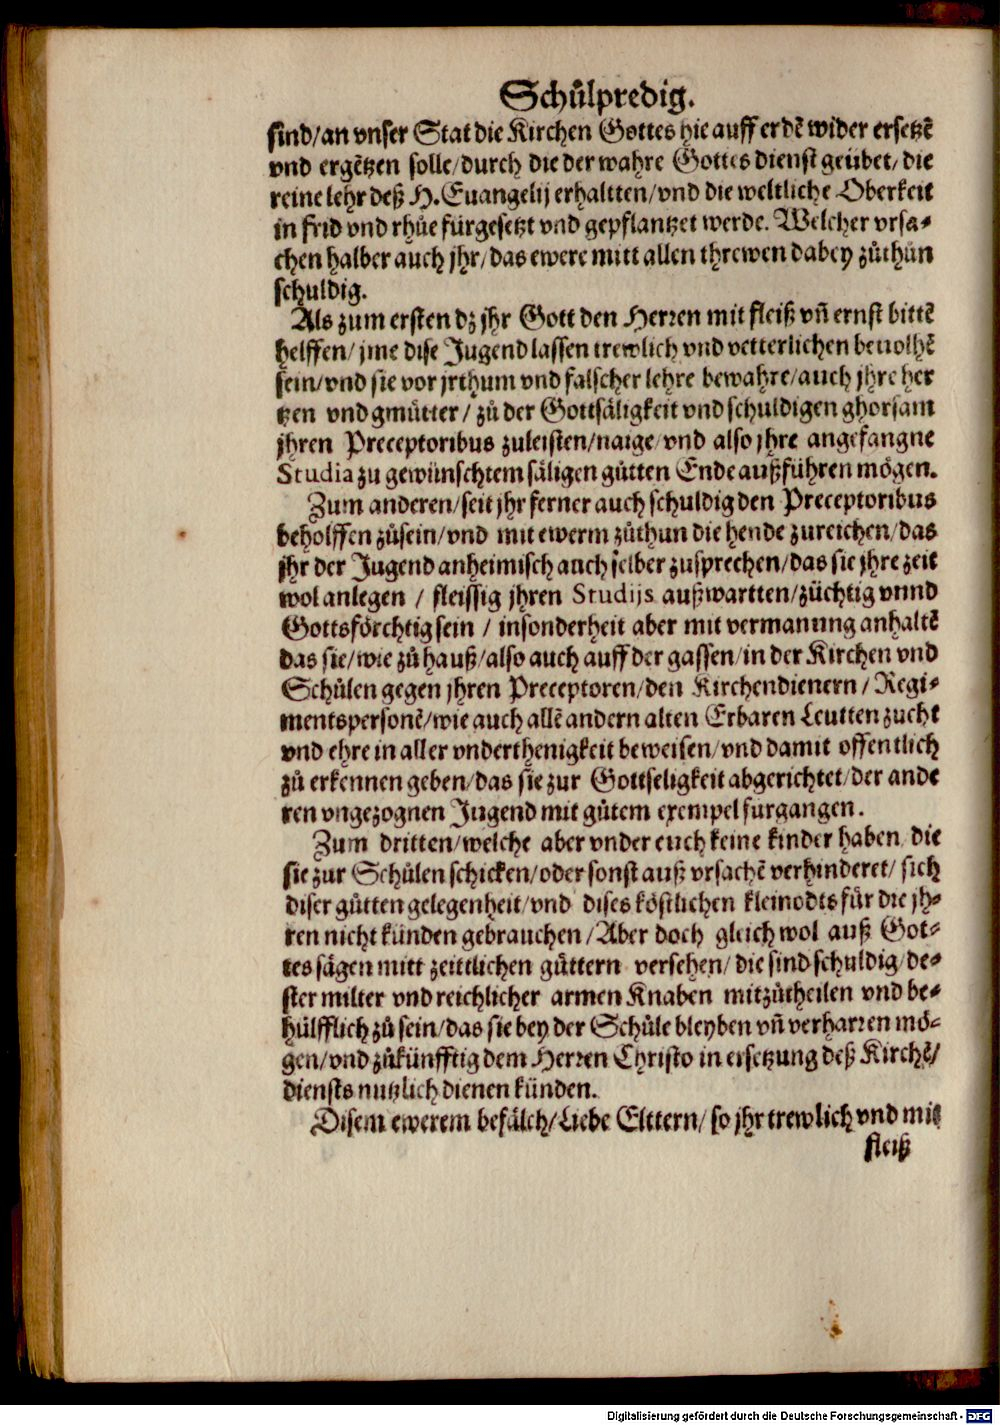 Schůlpredig.
sind/an vnser Stat die Kirchen Gottes hie auff erdẽ wider ersetzẽ
vnd ergẽtzen solle/durch die der wahre Gottes dienst geübet/die
reine lehr deß H. Euangelij erhaltten/vnd die weltliche Oberkeit
in frid vnd rhůe fürgesetzt vnd gepflantzet werde. Welcher vrsa-
chen halber auch jhr/das ewere mitt allen threwen dabey zůthůn
schuldig.
Als zum ersten dz jhr Gott den Herren mit fleiß vñ ernst bittẽ
helffen/jme dise Jugend lassen trewlich vnd vetterlichen beuolhẽ
sein/vnd sie vor jrthum vnd falscher lehre bewahre/auch jhre her
tzen vnd gmůtter/zů der Gottsäligkeit vnd schuldigen ghorsam
jhren Preceptoribus zuleisten/naige/vnd also jhre angefangne
Studia zu gewünschtem säligen gůtten Ende außführen mögen.
Zum anderen/seit jhr ferner auch schuldig den Preceptoribus
beholffen zůsein/vnd mit ewerm zůthun die hende zureichen/das
jhr der Jugend anheimisch auch selber zusprechen/das sie jhre zeit
wol anlegen / fleissig jhren Studijs außwartten/züchtig vnnd
Gottsförchtig sein / insonderheit aber mit vermanung anhaltẽ
das sie/wie zů hauß/also auch auff der gassen/in der Kirchen vnd
Schůlen gegen jhren Preceptoren/den Kirchendienern/Regi-
mentspersonẽ/wie auch allẽ andern alten Erbaren Leutten zucht
vnd ehre in aller vnderthenigkeit beweisen/vnd damit offentlich
zů erkennen geben/das sie zur Gottseligkeit abgerichtet/der ande
ren vngezognen Jugend mit gůtem exempel fürgangen.
Zum dritten/welche aber vnder euch keine kinder haben/die
sie zur Schůlen schicken/oder sonst auß vrsachẽ verhinderet/sich
diser gůtten gelegenheit/vnd dises köstlichen kleinodts für die jh-
ren nicht künden gebrauchen/Aber doch gleich wol auß Got-
tes sägen mitt zeittlichen gůttern versehen/die sind schuldig/de-
ster milter vnd reichlicher armen Knaben mitzůtheilen vnd be-
hülfflich zů sein/das sie bey der Schůle bleyben vñ verharren mö-
gen/vnd zůkünfftig dem Herren Christo in ersetzung deß Kirchẽ/
diensts nutzlich dienen künden.
Disem ewerem befälch/Liebe Elttern/so jhr trewlich vnd mit
fleiß
Digitalisierung gefördert durch die Deutsche Forschungsgemeinschaft - DFG